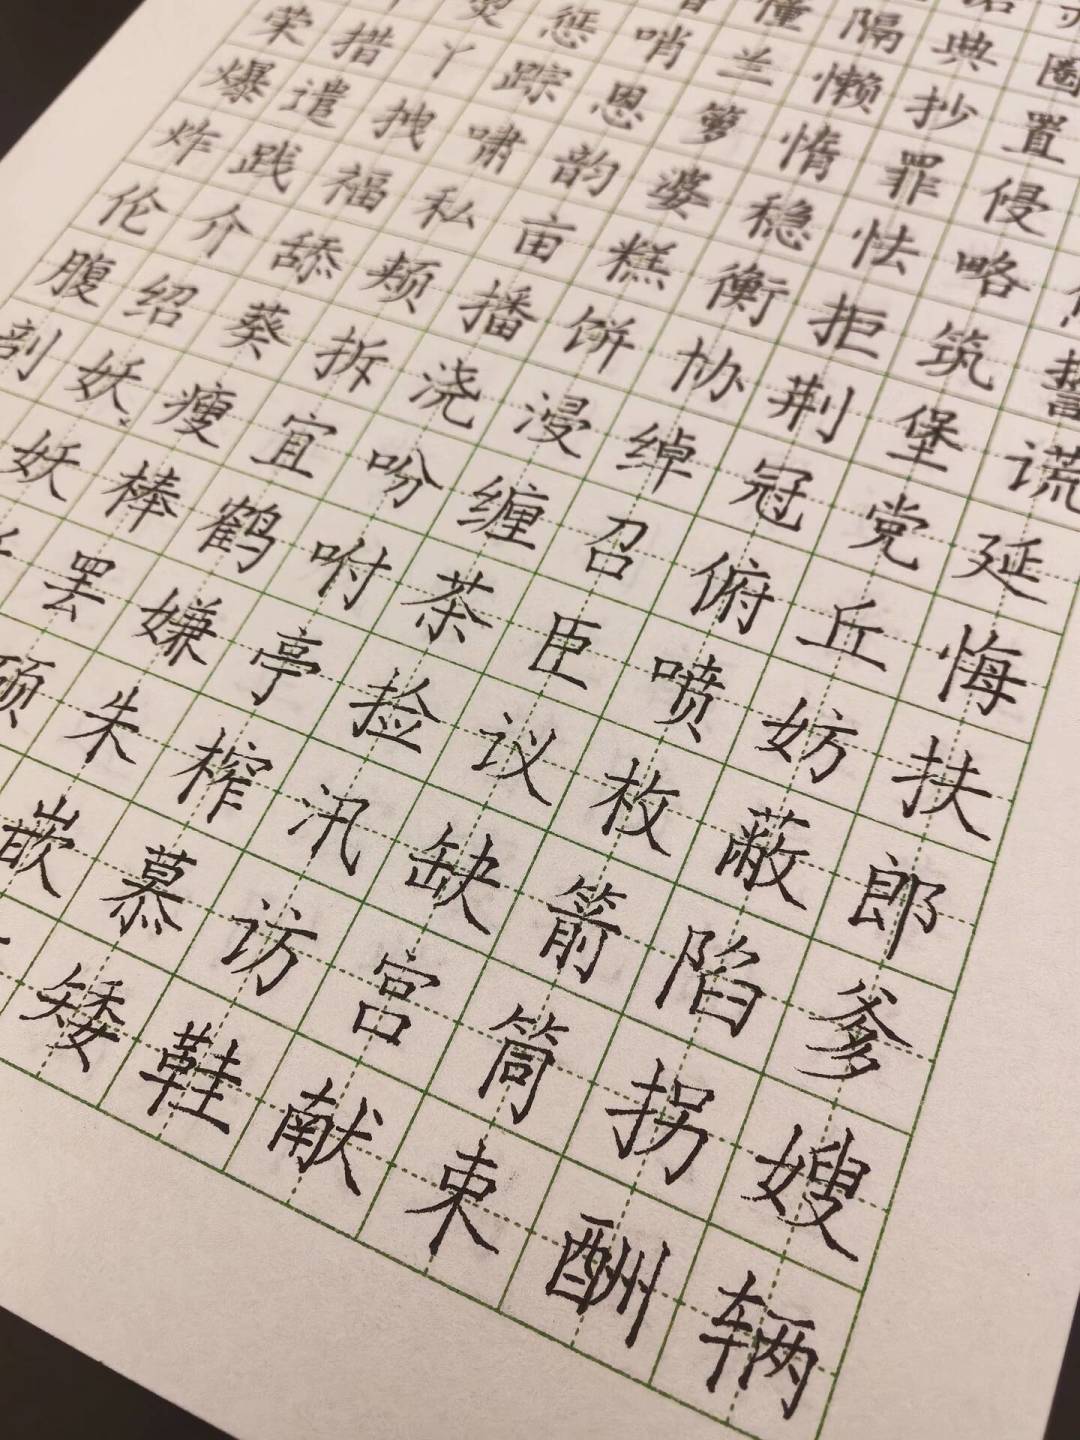 懂 隔 典 圈
惩 哨 兰 懒 抄 置
荣 措 丫 踪 恩 萝 惰 罪 侵
爆 遣 拽 啸 韵 婆 稳 怯 略
炸 践 福 私 亩 糕 衡 拒 筑 誓
伦 介 舔 颊 播 饼 协 荆 堡 谎
腹 绍 葵 拆 浇 浸 绰 冠 党 延
剖 妖 瘦 宜 吩 缠 召 俯 丘 悔
妖 棒 鹤 咐 茶 臣 喷 妨 扶
罢 嫌 亭 捡 议 枚 蔽 郎
硕 朱 榨 汛 缺 箭 陷 爹
嵌 慕 访 宫 筒 拐 嫂
矮 鞋 献 束 酬 辆